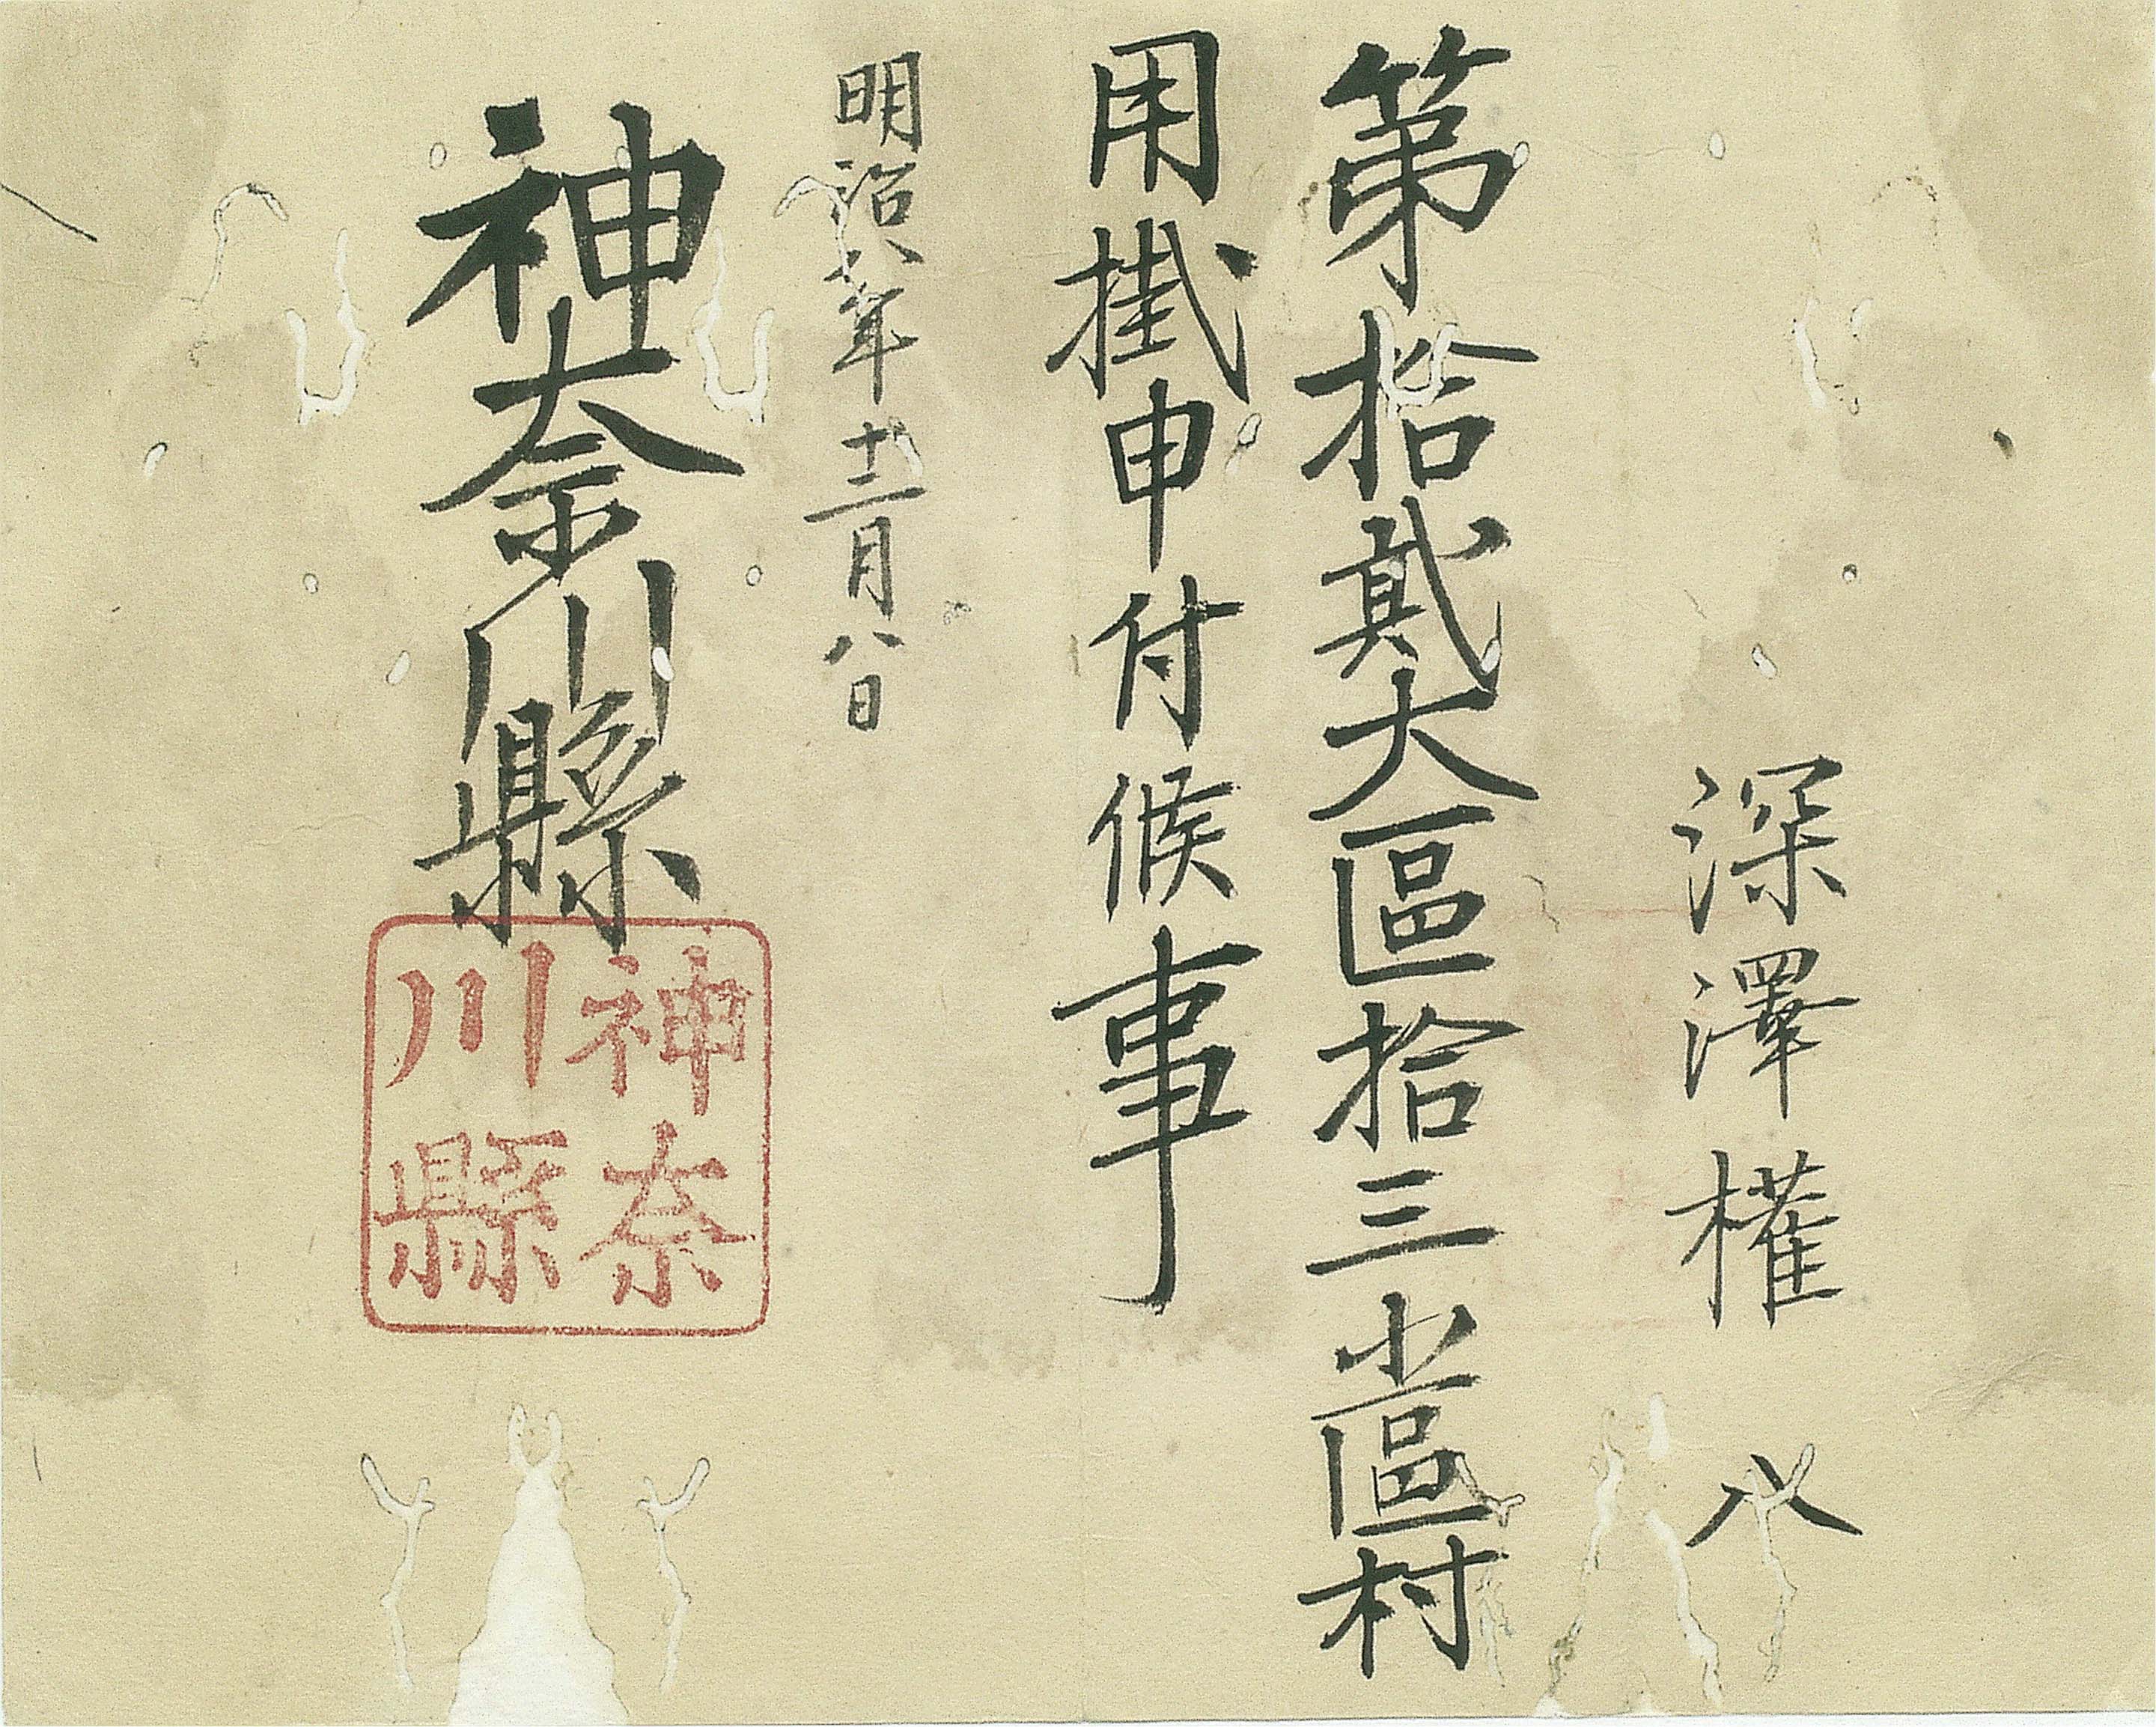 深澤權八
第拾貳大區拾三小區村
用掛申付候事
明治八年十二月八日
神奈川縣
神奈
川縣